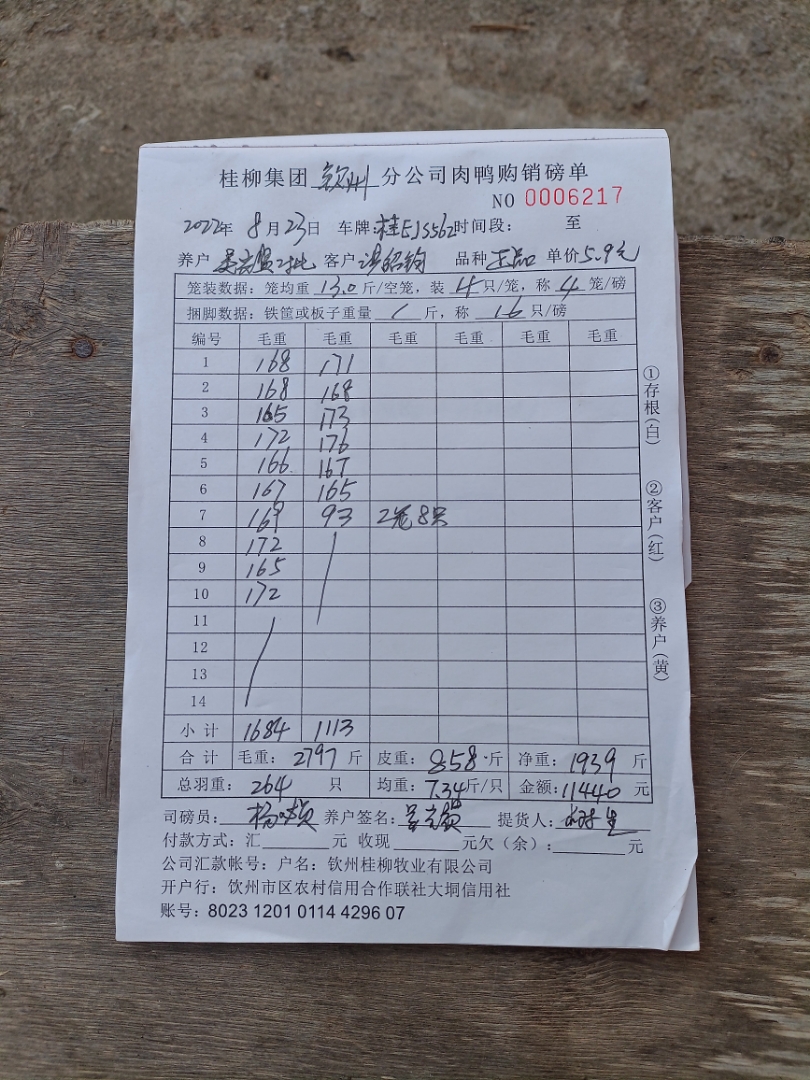 桂柳集团 钦州 分公司肉鸭购销磅单
NO 0006217
2022年 8月23日 车牌:桂EJS562 时间段: 至
养户 2批 客户 汤绍钧 品种 正品 单价 5.9元
笼装数据: 笼均重 13.0 斤/空笼, 装 4 只/笼, 称 4 笼/磅
捆脚数据: 铁筐或板子重量 / 斤, 称 16 只/磅
编号 毛重 毛重 毛重 毛重 毛重 毛重
1 168 171
2 168 168
3 165 173
4 172 176
5 166 167
6 167 165
7 169 93 2笼8只
8 172
9 165
10 172
11
12
13
14
小计 1684 1113
合计 毛重: 2797 斤 皮重: 858 斤 净重: 1939 斤
总羽重: 264 只 均重: 7.34 斤/只 金额: 11440 元
司磅员: 养户签名: 提货人:
付款方式: 汇 元 收现 元欠(余): 元
公司汇款帐号: 户名: 钦州桂柳牧业有限公司
开户行: 钦州市区农村信用合作联社大垌信用社
账号: 8023 1201 0114 4296 07
①存根(白)
②客户(红)
③养户(黄)